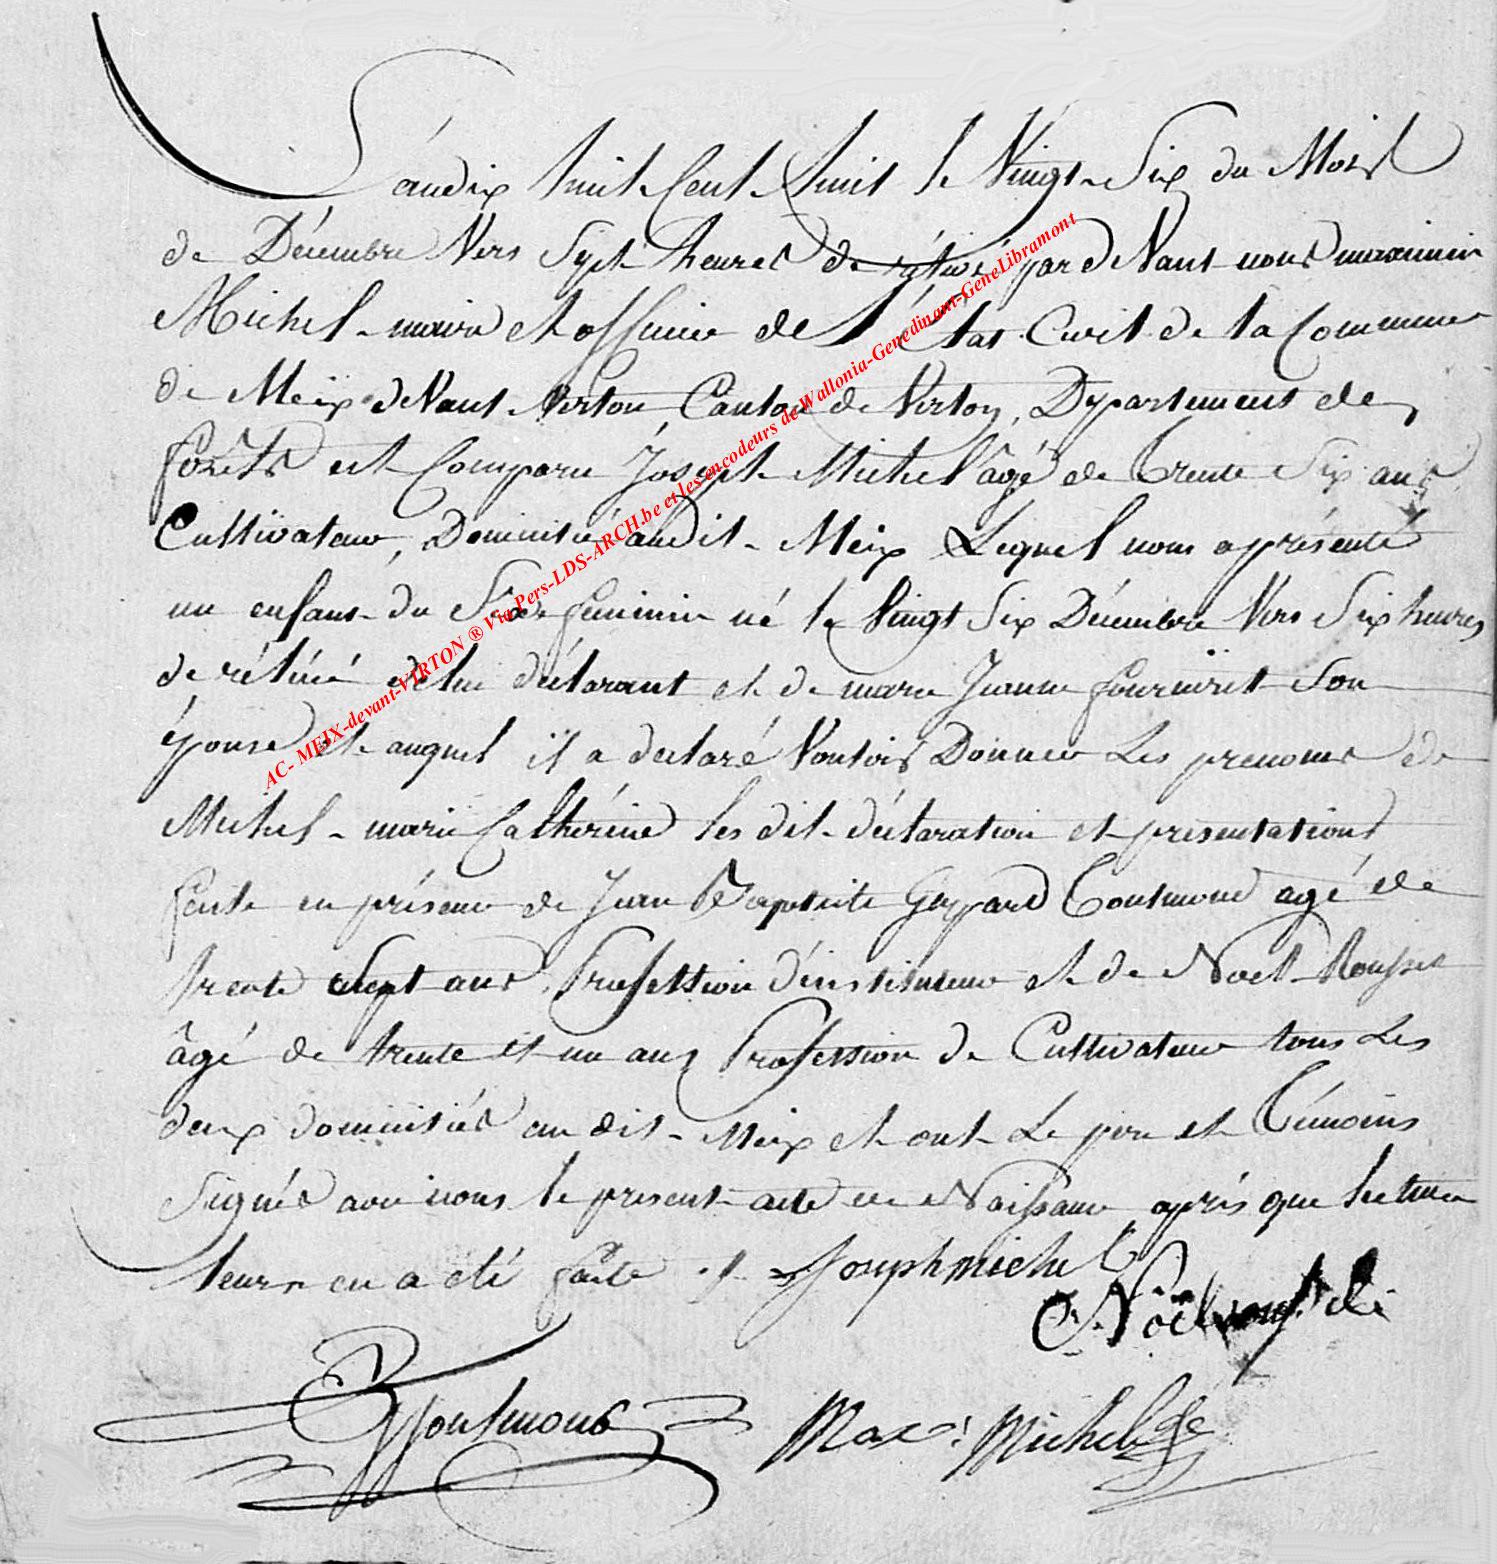 L'an dix huit Cent huit le Vingt Six du Mois
de Décembre Vers Sept heures de rélevé par dVant nous maximin
Michel maire et officier de l'état Civil de la Commune
de Meix dVant Virton Canton de Virton, Département des
forêts est Comparu Joseph Michel âgé de Trente Six ans
Cultivateur, Domicilié audit Meix Lequel nous a présenté
un enfant du Sexe feminin né le Vingt Six Décembre Vers Six heures
de rélévé de lui déclarant et de marie Jeanne fourniret Son
épouse et auquel il a déclaré Vouloir Donner Les prenoms de
Michel marie Catherine les dit déclaration et présentations
faite en présence de Jean Baptiste Gaspard Toutmond agé de
trente sept ans Profession d'instituteur et de Noel
âgé de trente et un ans Profession de Cultivateur tous Les
deux domiciliés au dit Meix et ont Le père et Témoins
Signés avec nous le présent acte de Naissance après que lecture
leurs en a été faite Joseph michel
Noël
Max: Michel
AC- MEIX-devant-VIRTON ® Via Pers-LDS-ARCH.be et les encodeurs de Wallonia-Genedinant-GeneLibramont